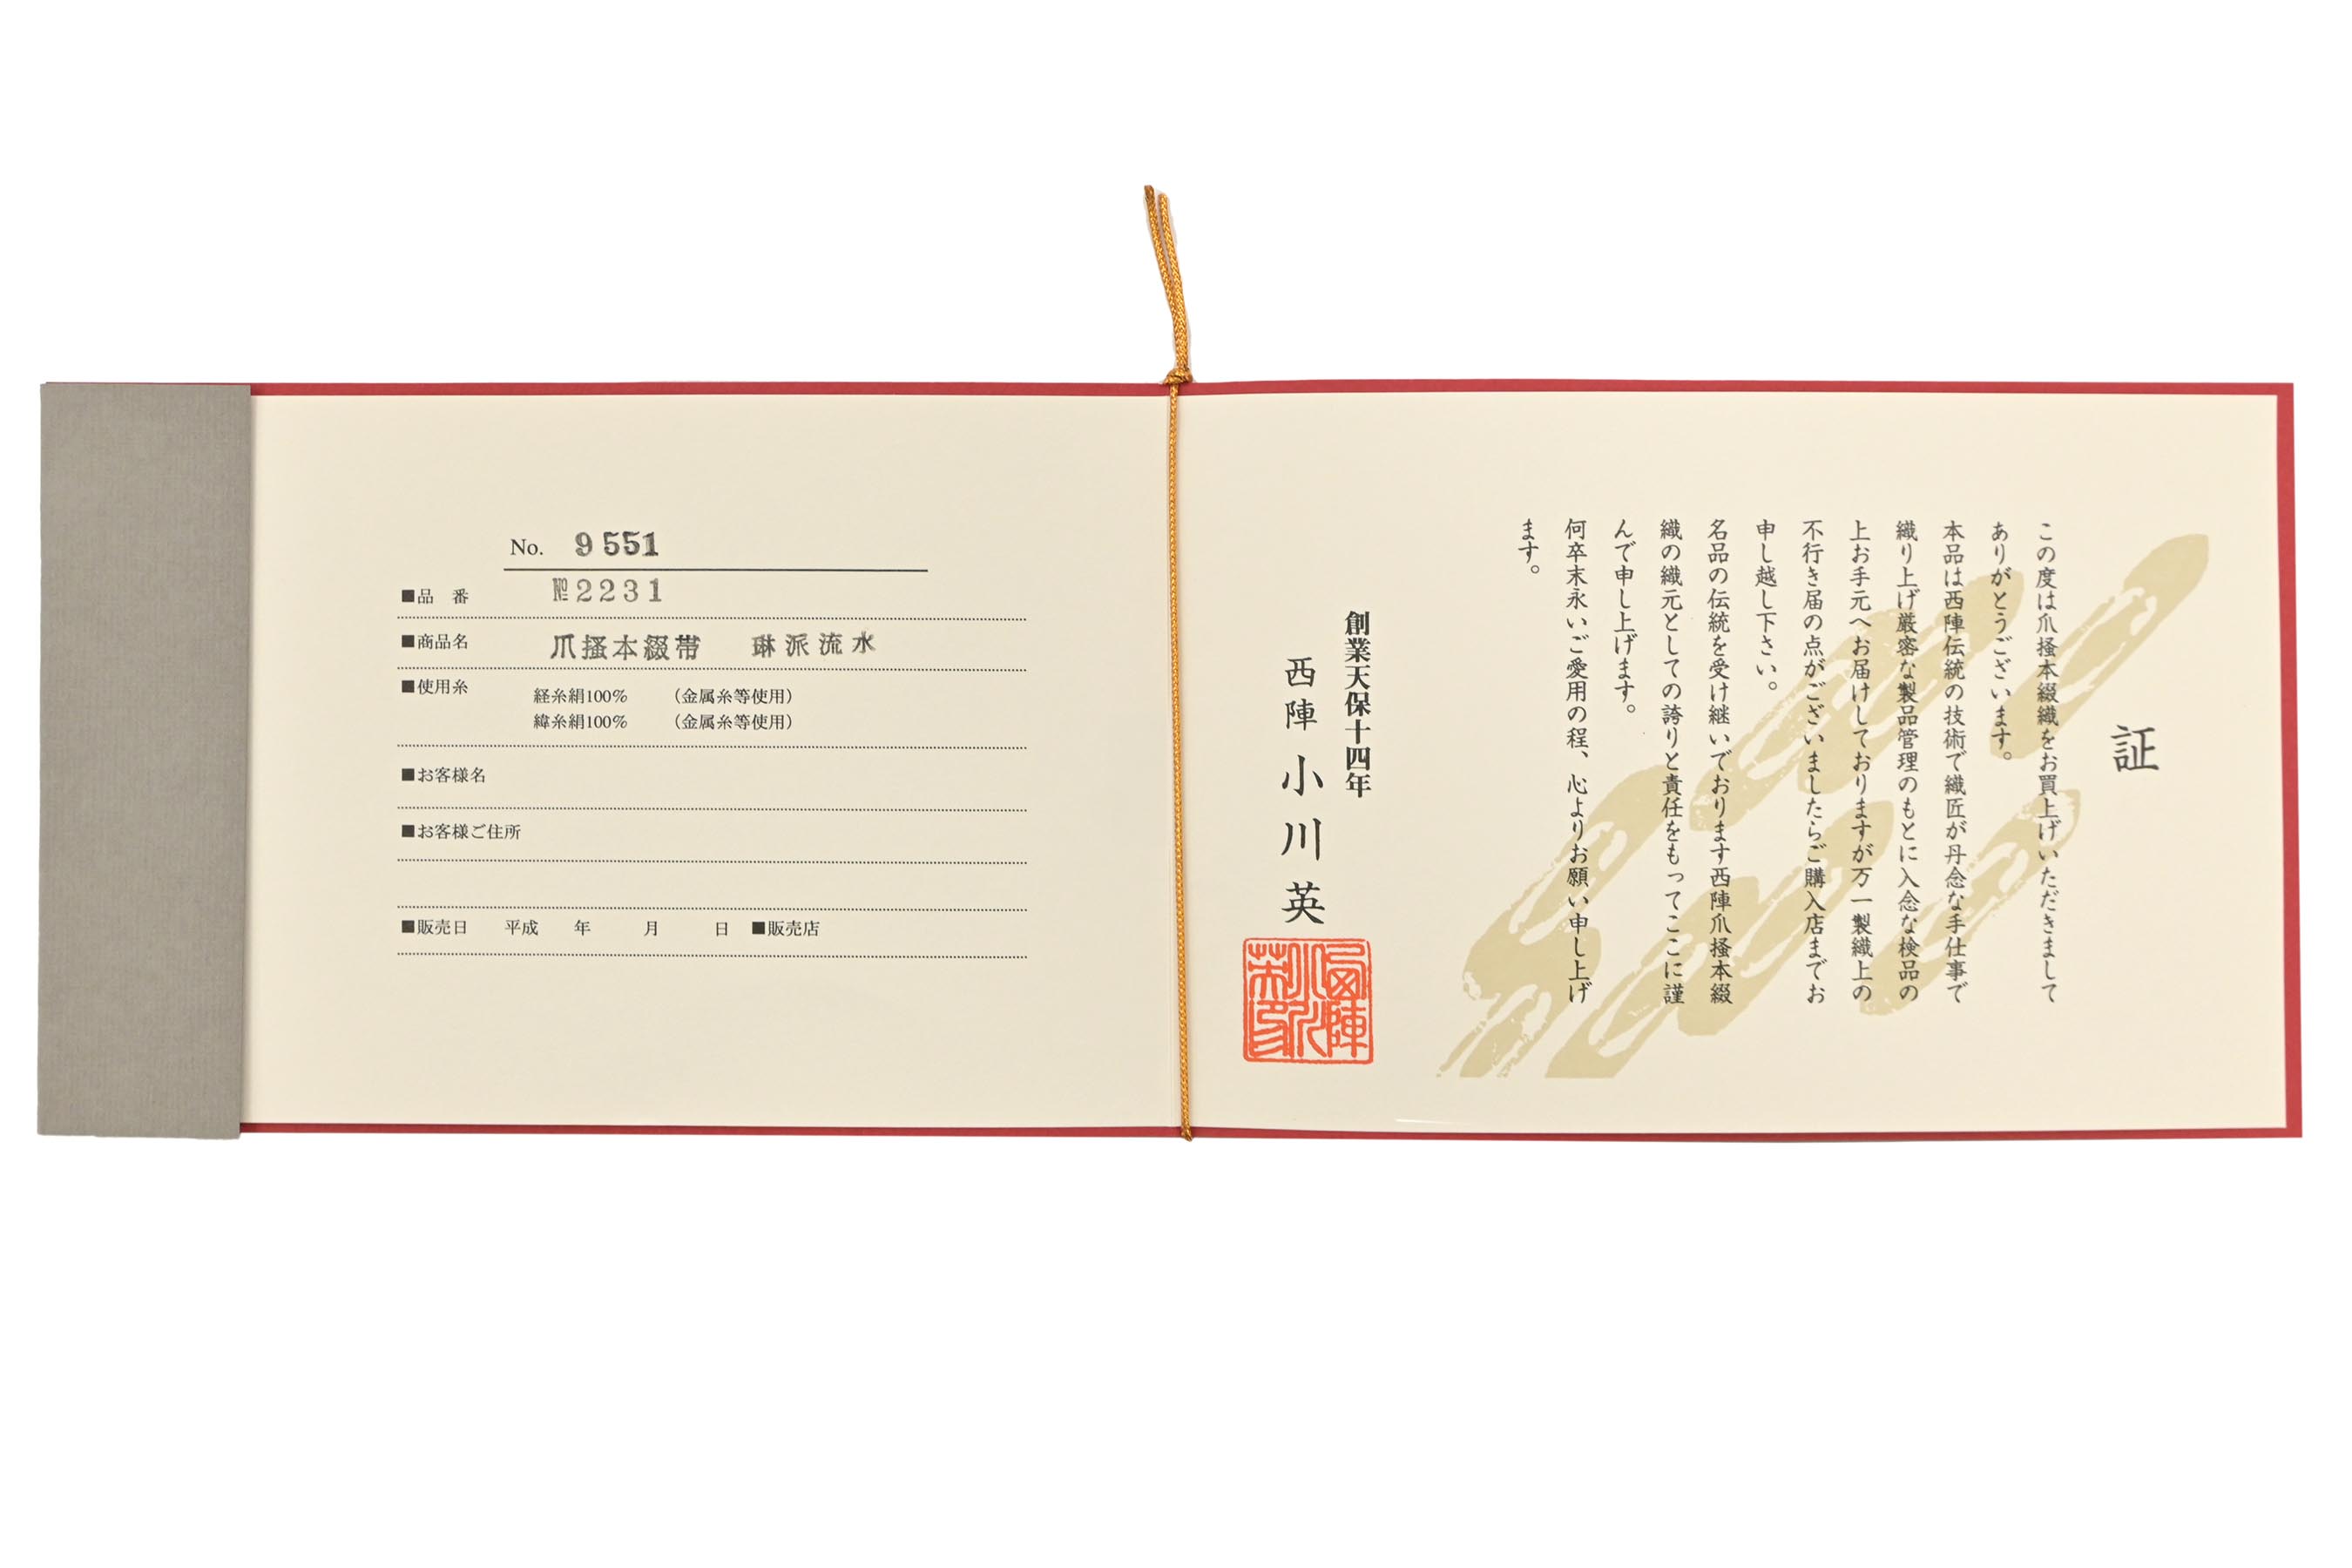 証
この度は爪掻本綴織をお買上げいただきまして
ありがとうございます。
本品は西陣伝統の技術で織匠が丹念な手仕事で
織り上げ厳密な製品管理のもとに入念な検品の
上お手元へお届けしておりますが万一製織上の
不行き届の点がございましたらご購入店までお
申し越し下さい。
名品の伝統を受け継いでおります西陣爪掻本綴
織の織元としての誇りと責任をもってここに謹
んで申し上げます。
何卒末永いご愛用の程、心よりお願い申し上げ
ます。
創業天保十四年
西陣 小川英
No. 9551
■品 番 №2231
■商品名 爪掻本綴帯 琳派流水
■使用糸 経糸絹100% （金属糸等使用）
緯糸絹100% （金属糸等使用）
■お客様名
■お客様ご住所
■販売日 平成 年 月 日 ■販売店